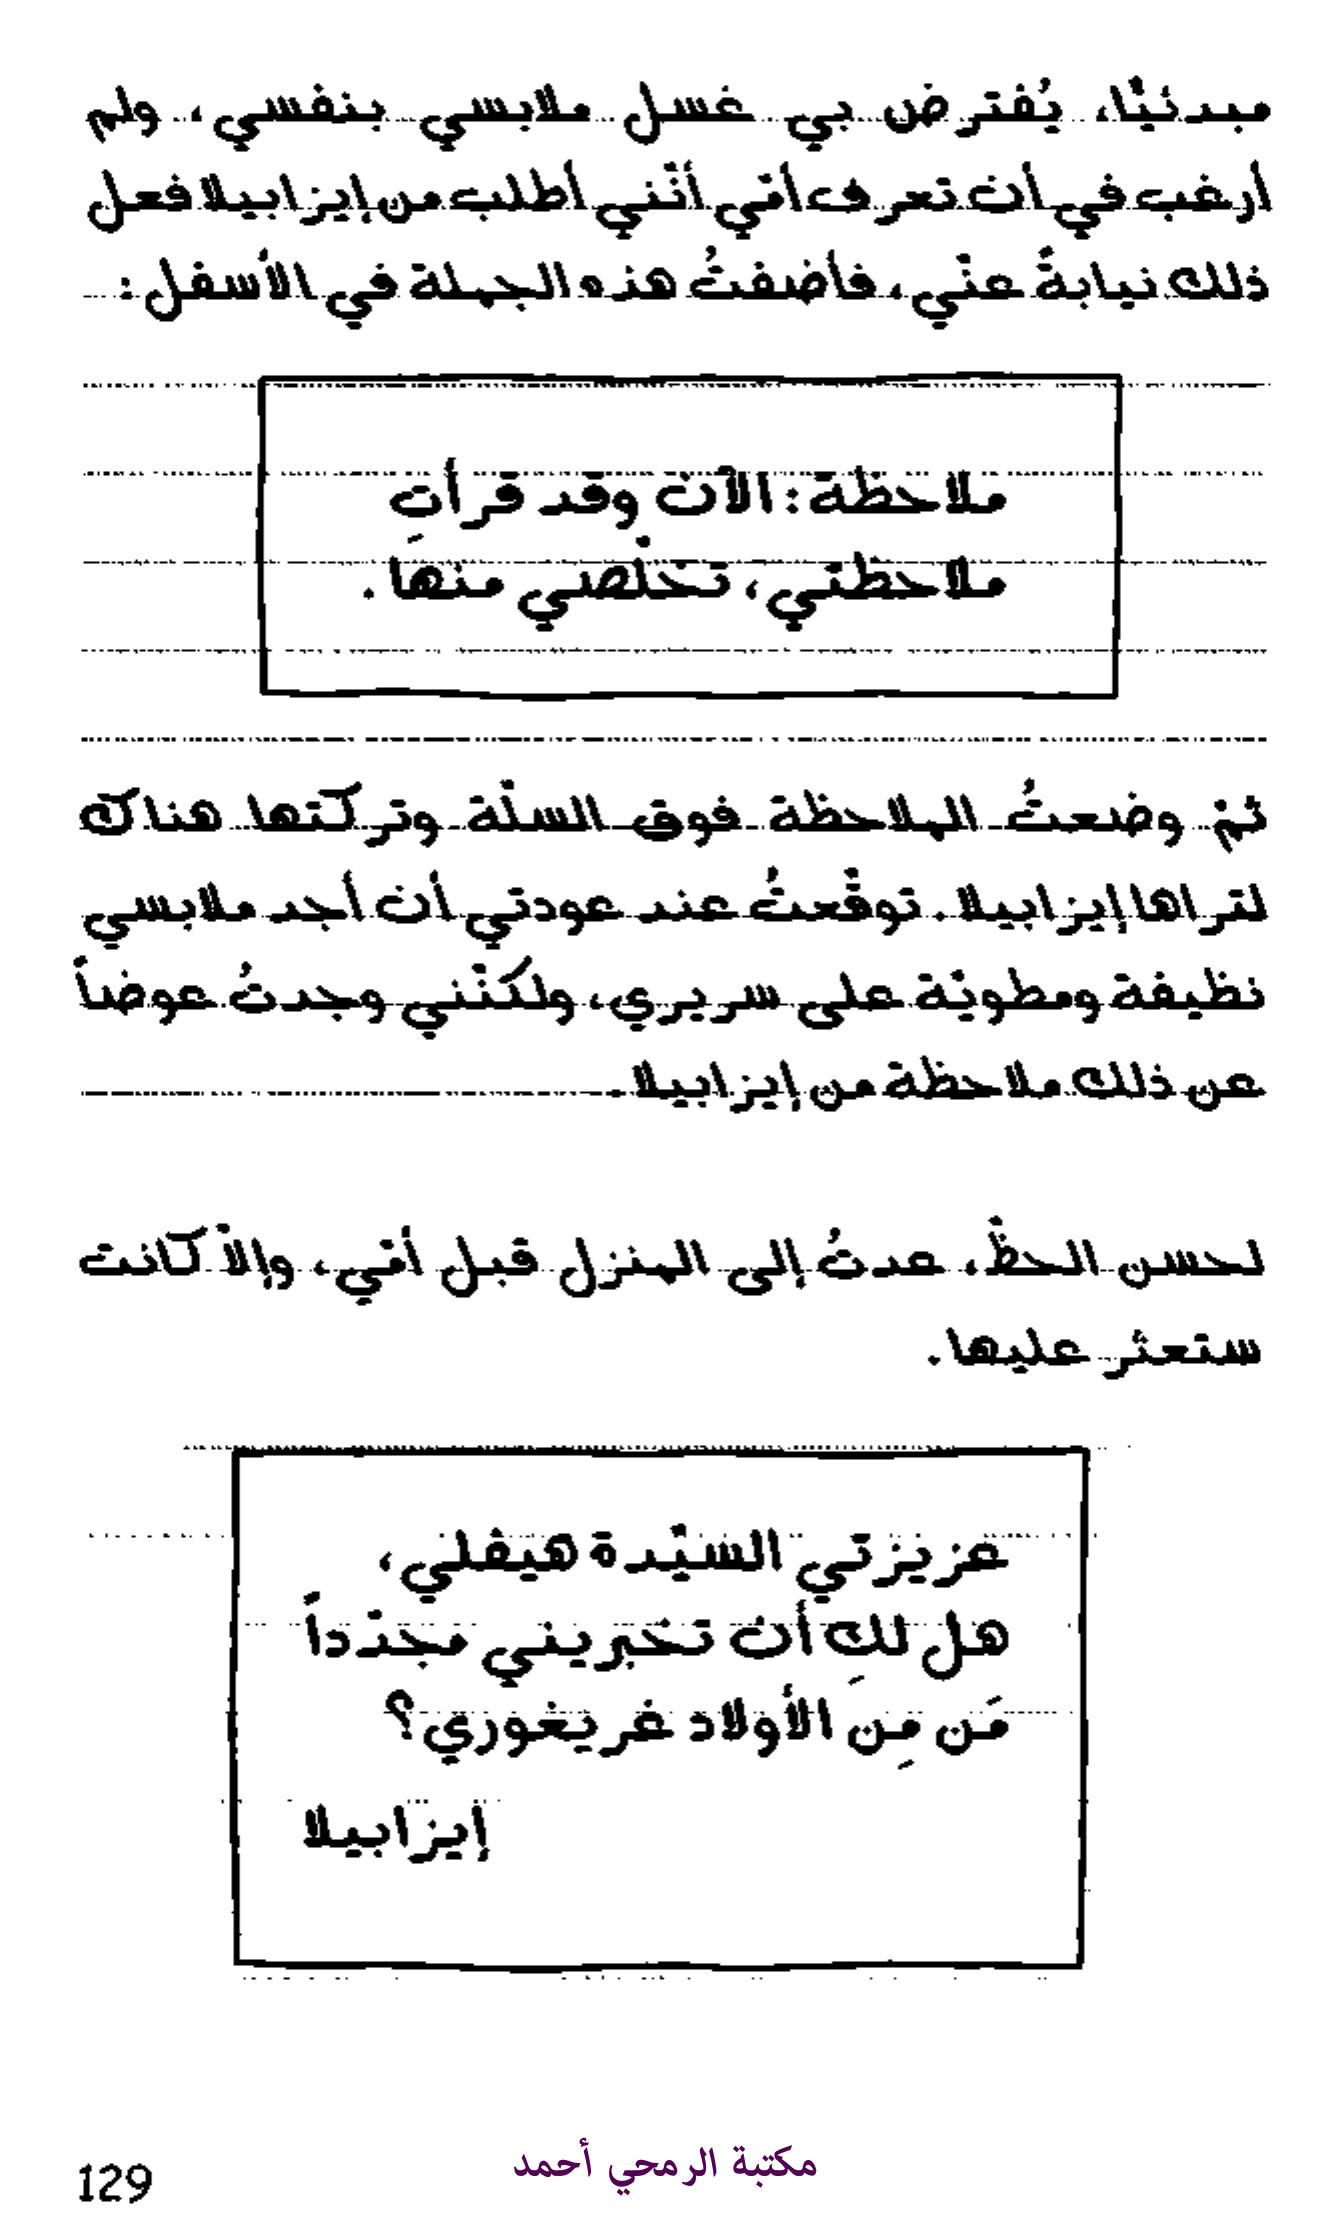 مبدئيًّا، يُفترض بي غسل ملابسي بنفسي، ولم
أرغب في أن تعرف أمّي أنّني أطلب من إيزابيلا فعل
ذلك نيابةً عنّي، فأضفتُ هذه الجملة في الأسفل:
ملاحظة: الآن وقد قرأتِ
ملاحظتي، تخلّصي منها.
ثمّ وضعتُ الملاحظة فوق السلّة وتركتها هناك
لتراها إيزابيلا. توقّعتُ عند عودتي أن أجد ملابسي
نظيفة ومطويّة على سريري، ولكنّني وجدتُ عوضاً
عن ذلك ملاحظة من إيزابيلا.
لحسن الحظّ، عدتُ إلى المنزل قبل أمّي، وإلاّ كانت
ستعثر عليها.
عزيزتي السيّدة هيفلي،
هل لكِ أن تخبريني مجدّداً
مَن مِن الأولاد غريغوري؟
إيزابيلا
مكتبة الرمحي أحمد
129